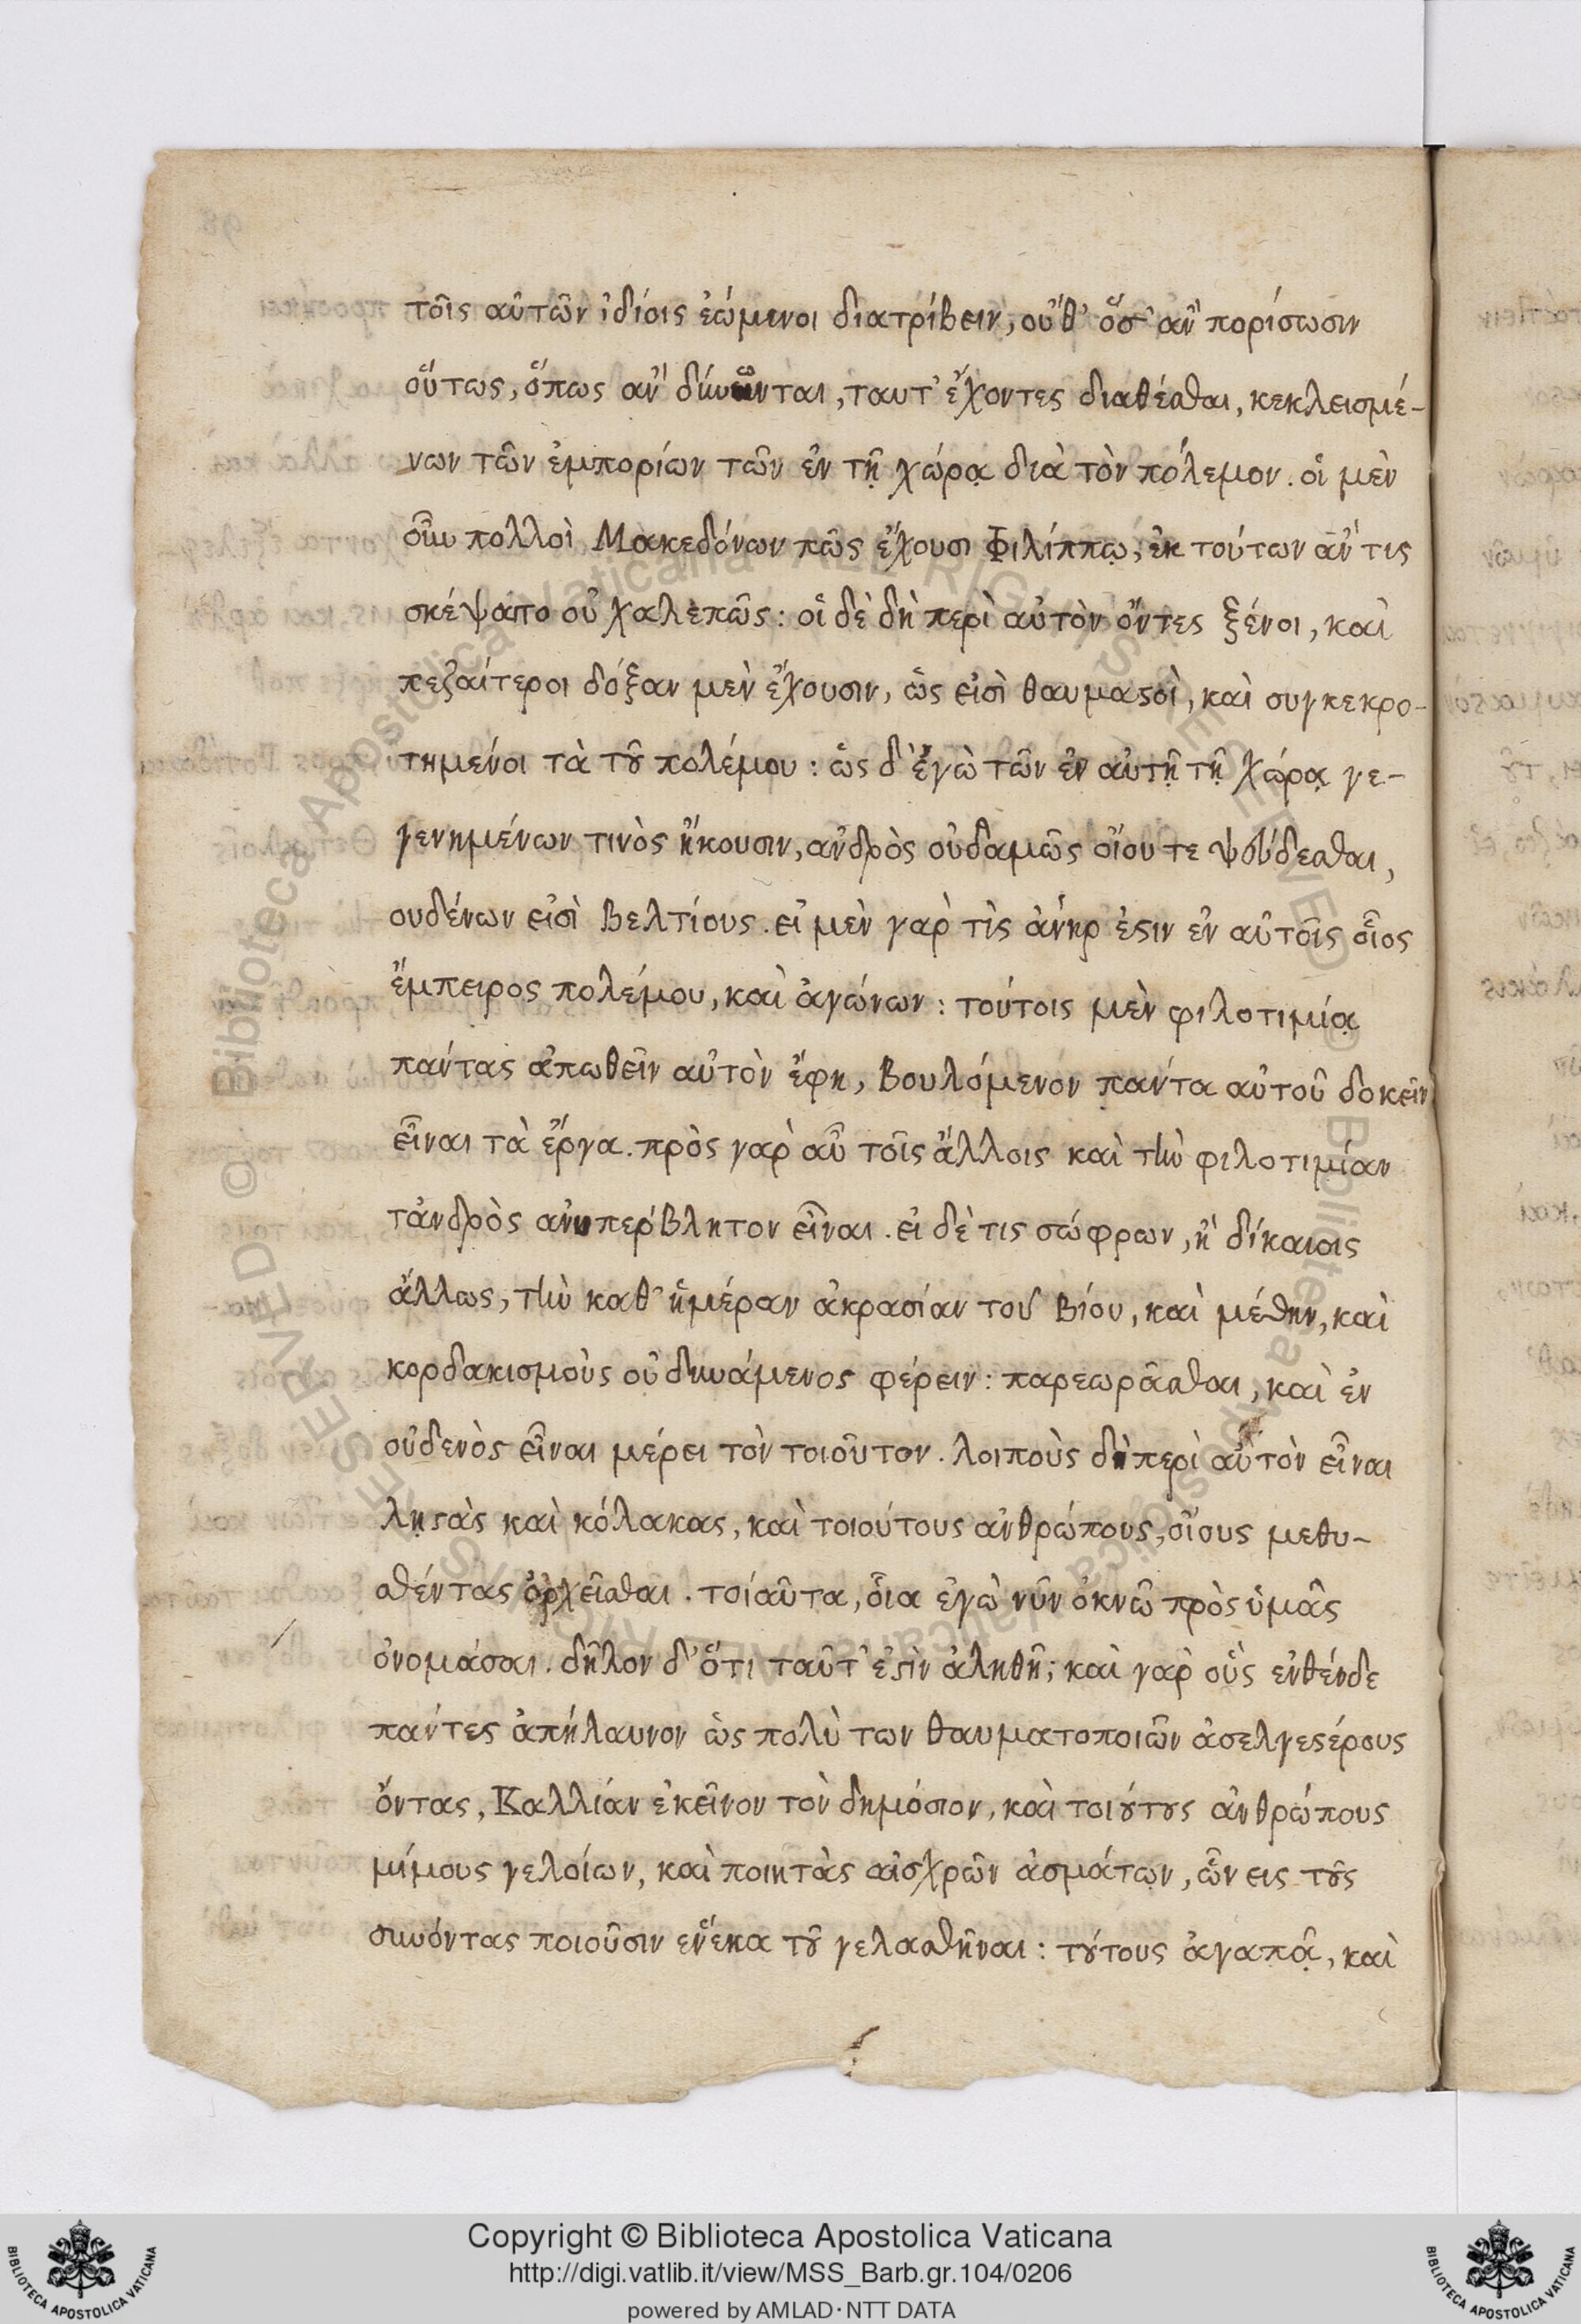 τοῖς αὑτῶν ἰδίοις ἐώμενοι διατρίβειν, οὔθ' ὅσ' ἂν πορίσωσιν
οὕτως, ὅπως ἂν δύνωνται, ταυτ' ἔχοντες διαθέσθαι, κεκλεισμέ-
νων τῶν ἐμπορίων τῶν ἐν τῇ χώρᾳ διὰ τὸν πόλεμον. οἱ μὲν
οὖν πολλοὶ Μακεδόνων πῶς ἔχουσι Φιλίππῳ, ἐκ τούτων ἄν τις
σκέψαιτο οὐ χαλεπῶς: οἱ δὲ δὴ περὶ αὐτὸν ὄντες ξένοι, καὶ
πεζαίτεροι δόξαν μὲν ἔχουσιν, ὡς εἰσὶ θαυμαστοὶ, καὶ συγκεκρο-
τημένοι τὰ τοῦ πολέμου: ὡς δ' ἐγὼ τῶν ἐν αὐτῇ τῇ χώρᾳ γε-
γενημένων τινὸς ἤκουσιν, ἀνδρὸς οὐδαμῶς οἵου τε ψεύδεσθαι,
ουδένων εἰσὶ βελτίους. εἰ μὲν γαρ τὶς ἀνὴρ ἐστιν ἐν αὐτοῖς οἷος
ἔμπειρος πολέμου, καὶ ἀγώνων: τούτοις μὲν φιλοτιμίᾳ
πάντας ἀπωθεῖν αὐτὸν ἔφη, βουλόμενον πάντα αὑτοῦ δοκεῖν
εἶναι τὰ ἔργα. πρὸς γαρ αὖ τοῖς ἄλλοις καὶ τὴν φιλοτιμίαν
τἀνδρὸς ἀνυπέρβλητον εἶναι. εἰ δέ τις σώφρων, ἢ δίκαιοις
ἄλλως, τὴν καθ' ἡμέραν ἀκρασίαν τοῦ βίου, καὶ μέθην, καὶ
κορδακισμοὺς οὐ δυνάμενος φέρειν: παρεωρᾶσθαι, καὶ ἐν
οὐδενὸς εἶναι μέρει τὸν τοιοῦτον. λοιποὺς δὴ περὶ αὐτὸν εἶναι
λῃστὰς καὶ κόλακας, καὶ τοιούτους ἀνθρώπους, οἵους μεθυ-
σθέντας ὀρχεῖσθαι. τοίαῦτα, οἷα ἐγὼ νῦν ὀκνῶ πρὸς ὑμᾶς
ὀνομάσαι. δῆλον δ' ὅτι ταῦτ' ἐστὶν ἀληθῆ; καὶ γαρ οὓς ἐνθένδε
πάντες ἀπήλαυνον ὡς πολὺ των θαυματοποιῶν ἀσελγεστέρους
ὄντας, Καλλίαν ἐκεῖνον τὸν δημόσιον, καὶ τοιούτους ἀνθρώπους
μίμους γελοίων, καὶ ποιητὰς αἰσχρῶν ἀσμάτων, ὧν εις τοῦς
συνόντας ποιοῦσιν ἕνεκα τοῦ γελασθῆναι: τούτους ἀγαπᾷ, καὶ
Copyright © Biblioteca Apostolica Vaticana
http://digi.vatlib.it/view/MSS_Barb.gr.104/0206
powered by AMLAD·NTT DATA